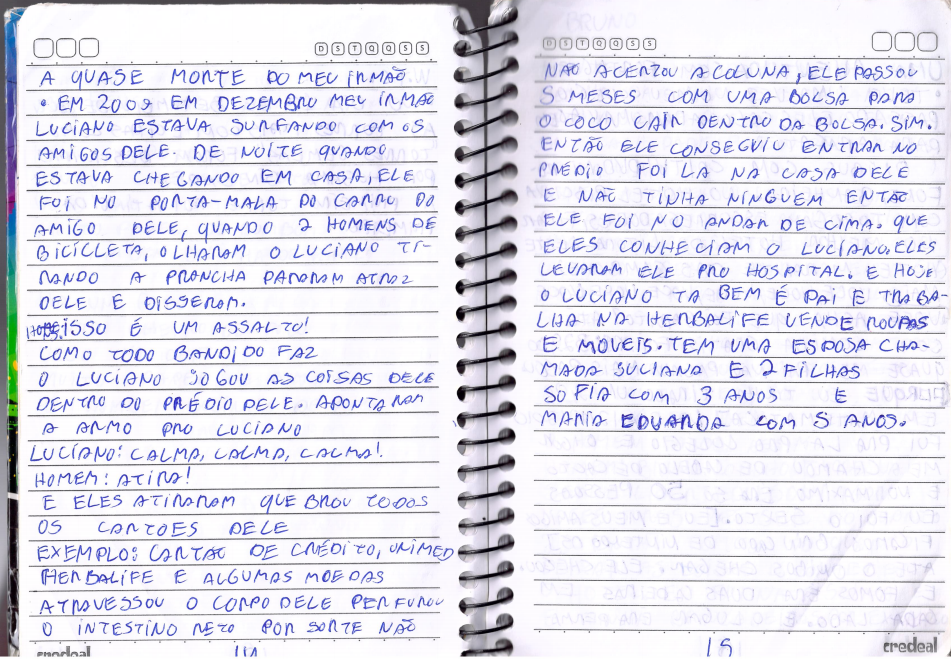 D S T Q Q S S
A QUASE MORTE DO MEU IRMÃO
• EM 2009 EM DEZEMBRO MEU IRMÃO
LUCIANO ESTAVA SURFANDO COM OS
AMIGOS DELE. DE NOITE QUANDO
ESTAVA CHEGANDO EM CASA, ELE
FOI NO PORTA-MALA DO CARRO DO
AMIGO DELE, QUANDO 2 HOMENS DE
BICICLETA, OLHARAM O LUCIANO TI-
RANDO A PRANCHA PARARAM ATRAZ
DELE E DISSERAM.
ISSO É UM ASSALTO!
COMO TODO BANDIDO FAZ
O LUCIANO JOGOU AS COISAS DELE
DENTRO DO PRÉDIO DELE. APONTARAM
A ARMO PRO LUCIANO
LUCIANO: CALMA, CALMA, CALMA!
HOMEM: ATIRA!
E ELES ATIRARAM QUEBROU TODOS
OS CARTOES DELE
EXEMPLO: CARTÃO DE CRÉDITO, UNIMED
HERBALIFE E ALGUMAS MOEDAS
ATRAVESSOU O CORPO DELE PERFUROU
O INTESTINO RETO POR SORTE NÃO
credeal
14
D S T Q Q S S
NÃO ACERTOU A COLUNA, ELE PASSOU
5 MESES COM UMA BOLSA PARA
O COCO CAIR DENTRO DA BOLSA. SIM.
ENTÃO ELE CONSEGUIU ENTRAR NO
PRÉDIO FOI LA NA CASA DELE
E NÃO TINHA NINGUEM ENTÃO
ELE FOI NO ANDAR DE CIMA. QUE
ELES CONHECIAM O LUCIANO. ELES
LEVARAM ELE PRO HOSPITAL. E HOJE
O LUCIANO TA BEM É PAI E TRABA-
LHA NA HERBALIFE VENDE ROUPAS
E MOVEIS. TEM UMA ESPOSA CHA-
MADA JULIANA E 2 FILHAS
SOFIA COM 3 ANOS E
MARIA EDUARDA COM 5 ANOS.
15
credeal